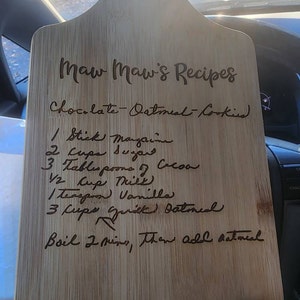 Maw Maw's Recipes
Chocolate-Oatmeal-Cookies
1 Stick Margarine
2 Cups Sugar
3 Tablespoons of Cocoa
1/2 Cup Milk
1 teaspoon Vanilla
3 Cups Quick Oatmeal
Boil 2 Mins, Then add Oatmeal